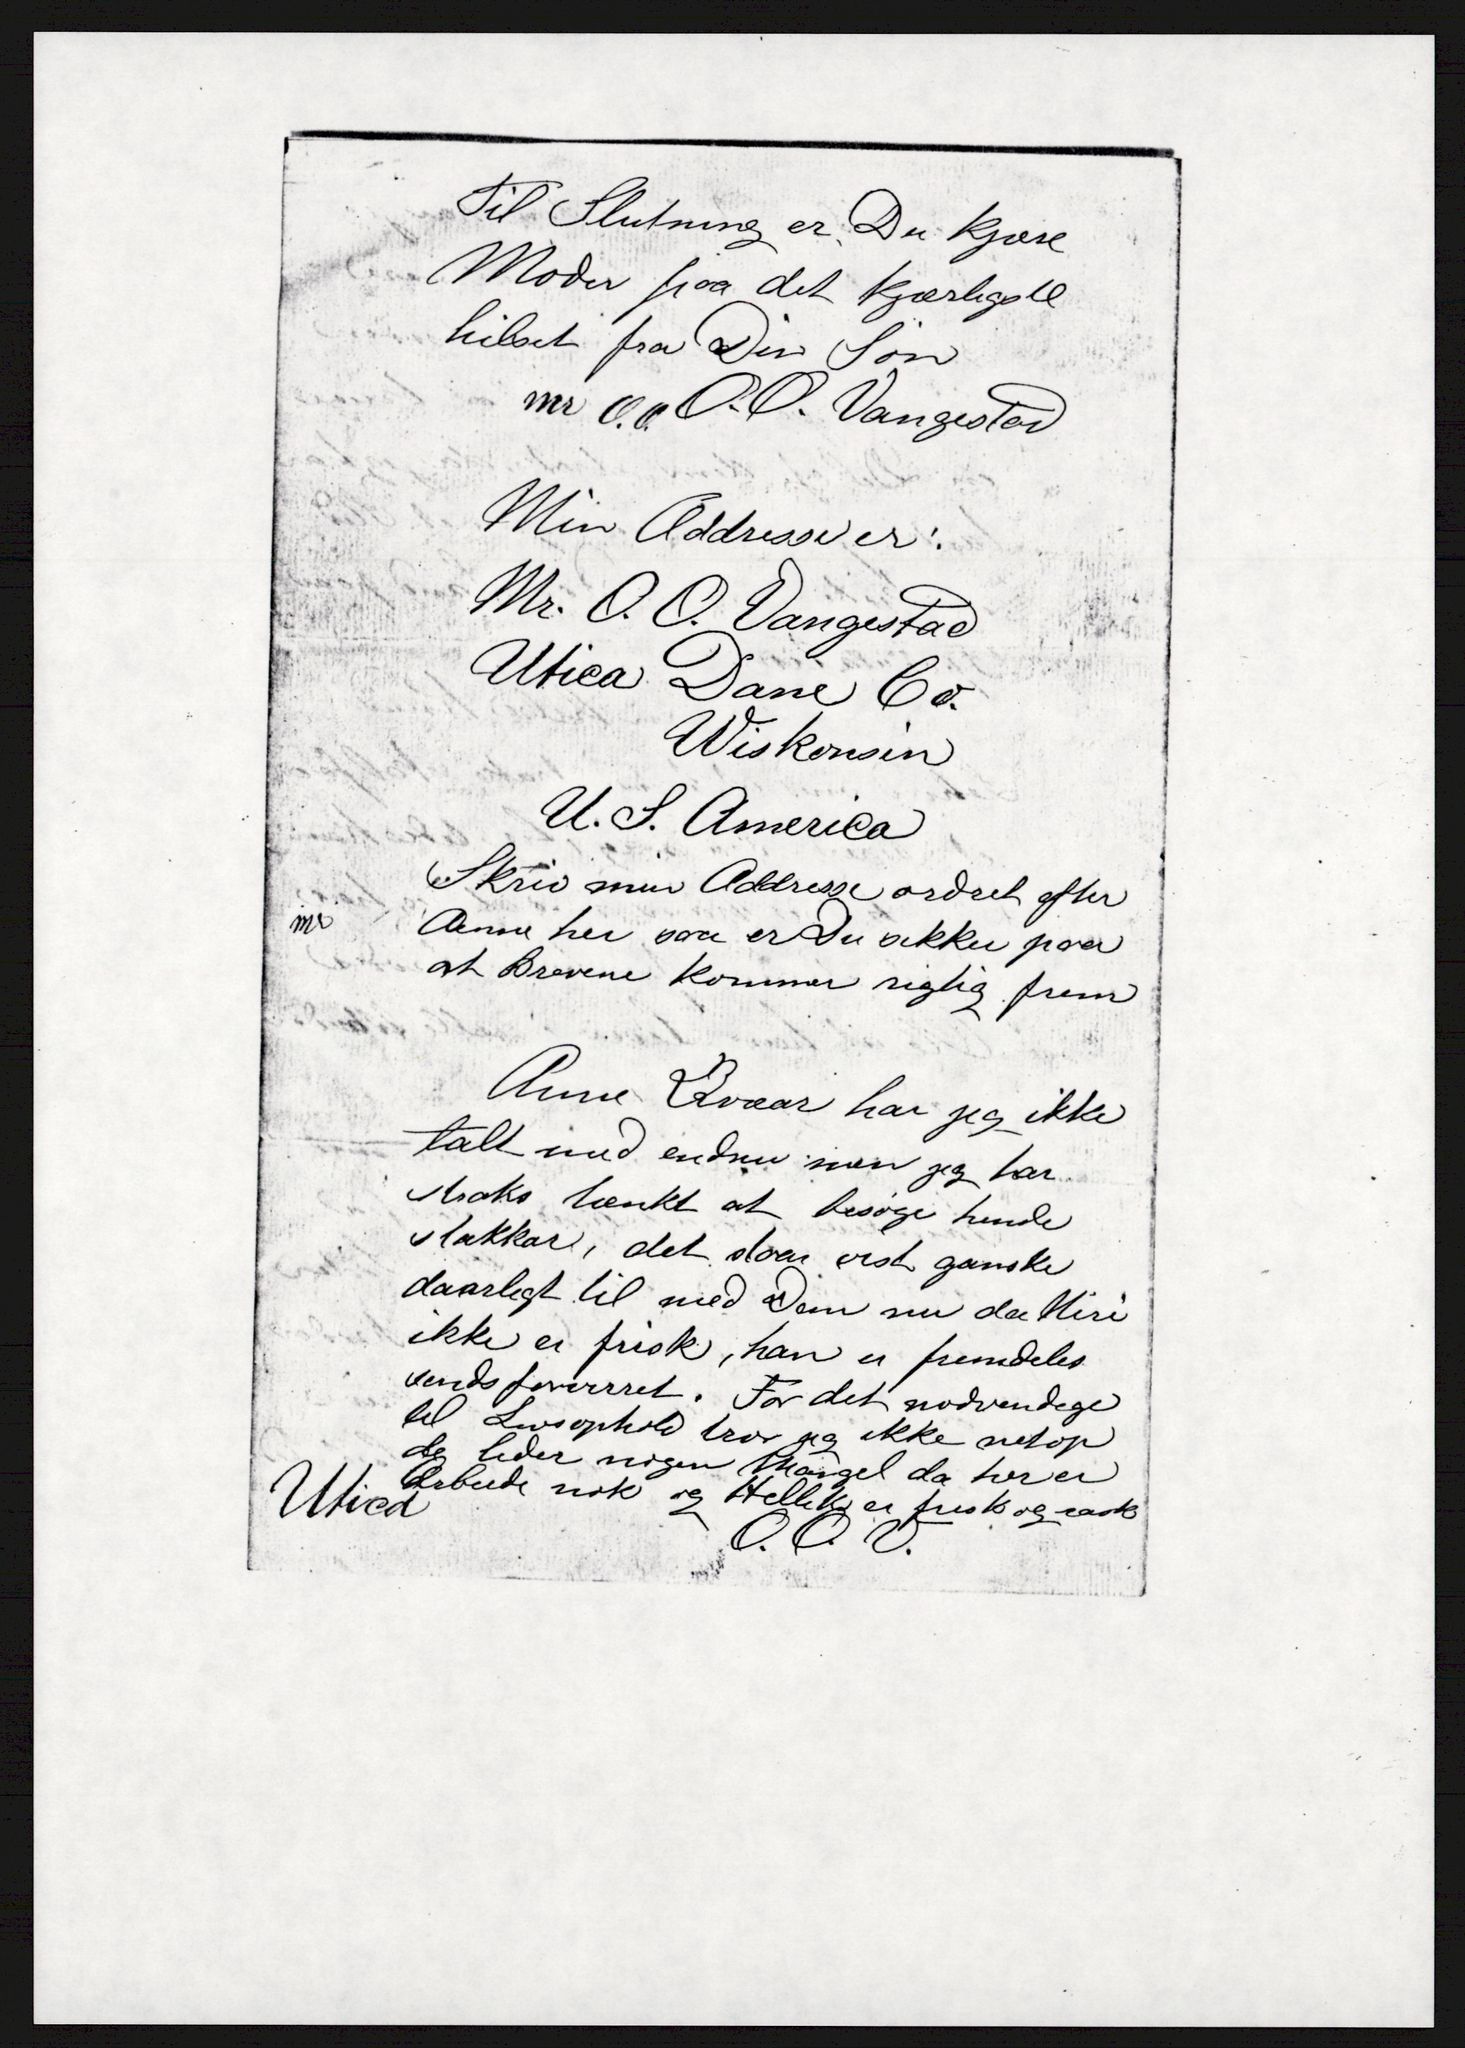 Til Slutning er Du kjære
Moder paa det kjærligste
hilset fra Din Søn
mr O.O. O.O. Vangestad
Min Addresse er:
Mr. O. O. Vangestad
Utica Dane Co.
Wiskonsin
U. S. America
Skriv min Addresse ordret efter
mr
denne her saa er Du sikker paa
at Brevene kommer rigtig frem
Anne Kvaar har jeg ikke
talt med endnu men jeg har
straks tænkt at besøge hende
stakkar, det staar vist ganske
daarligt til med Dem nu da
ikke er frisk, han er fremdeles
sindsforvirret. For det nødvendige
til Livsophold tror jeg ikke netop
de lider nogen Mangel da her er
Arbeide nok og Hellik er frisk og rask
Utica
O. O. V.